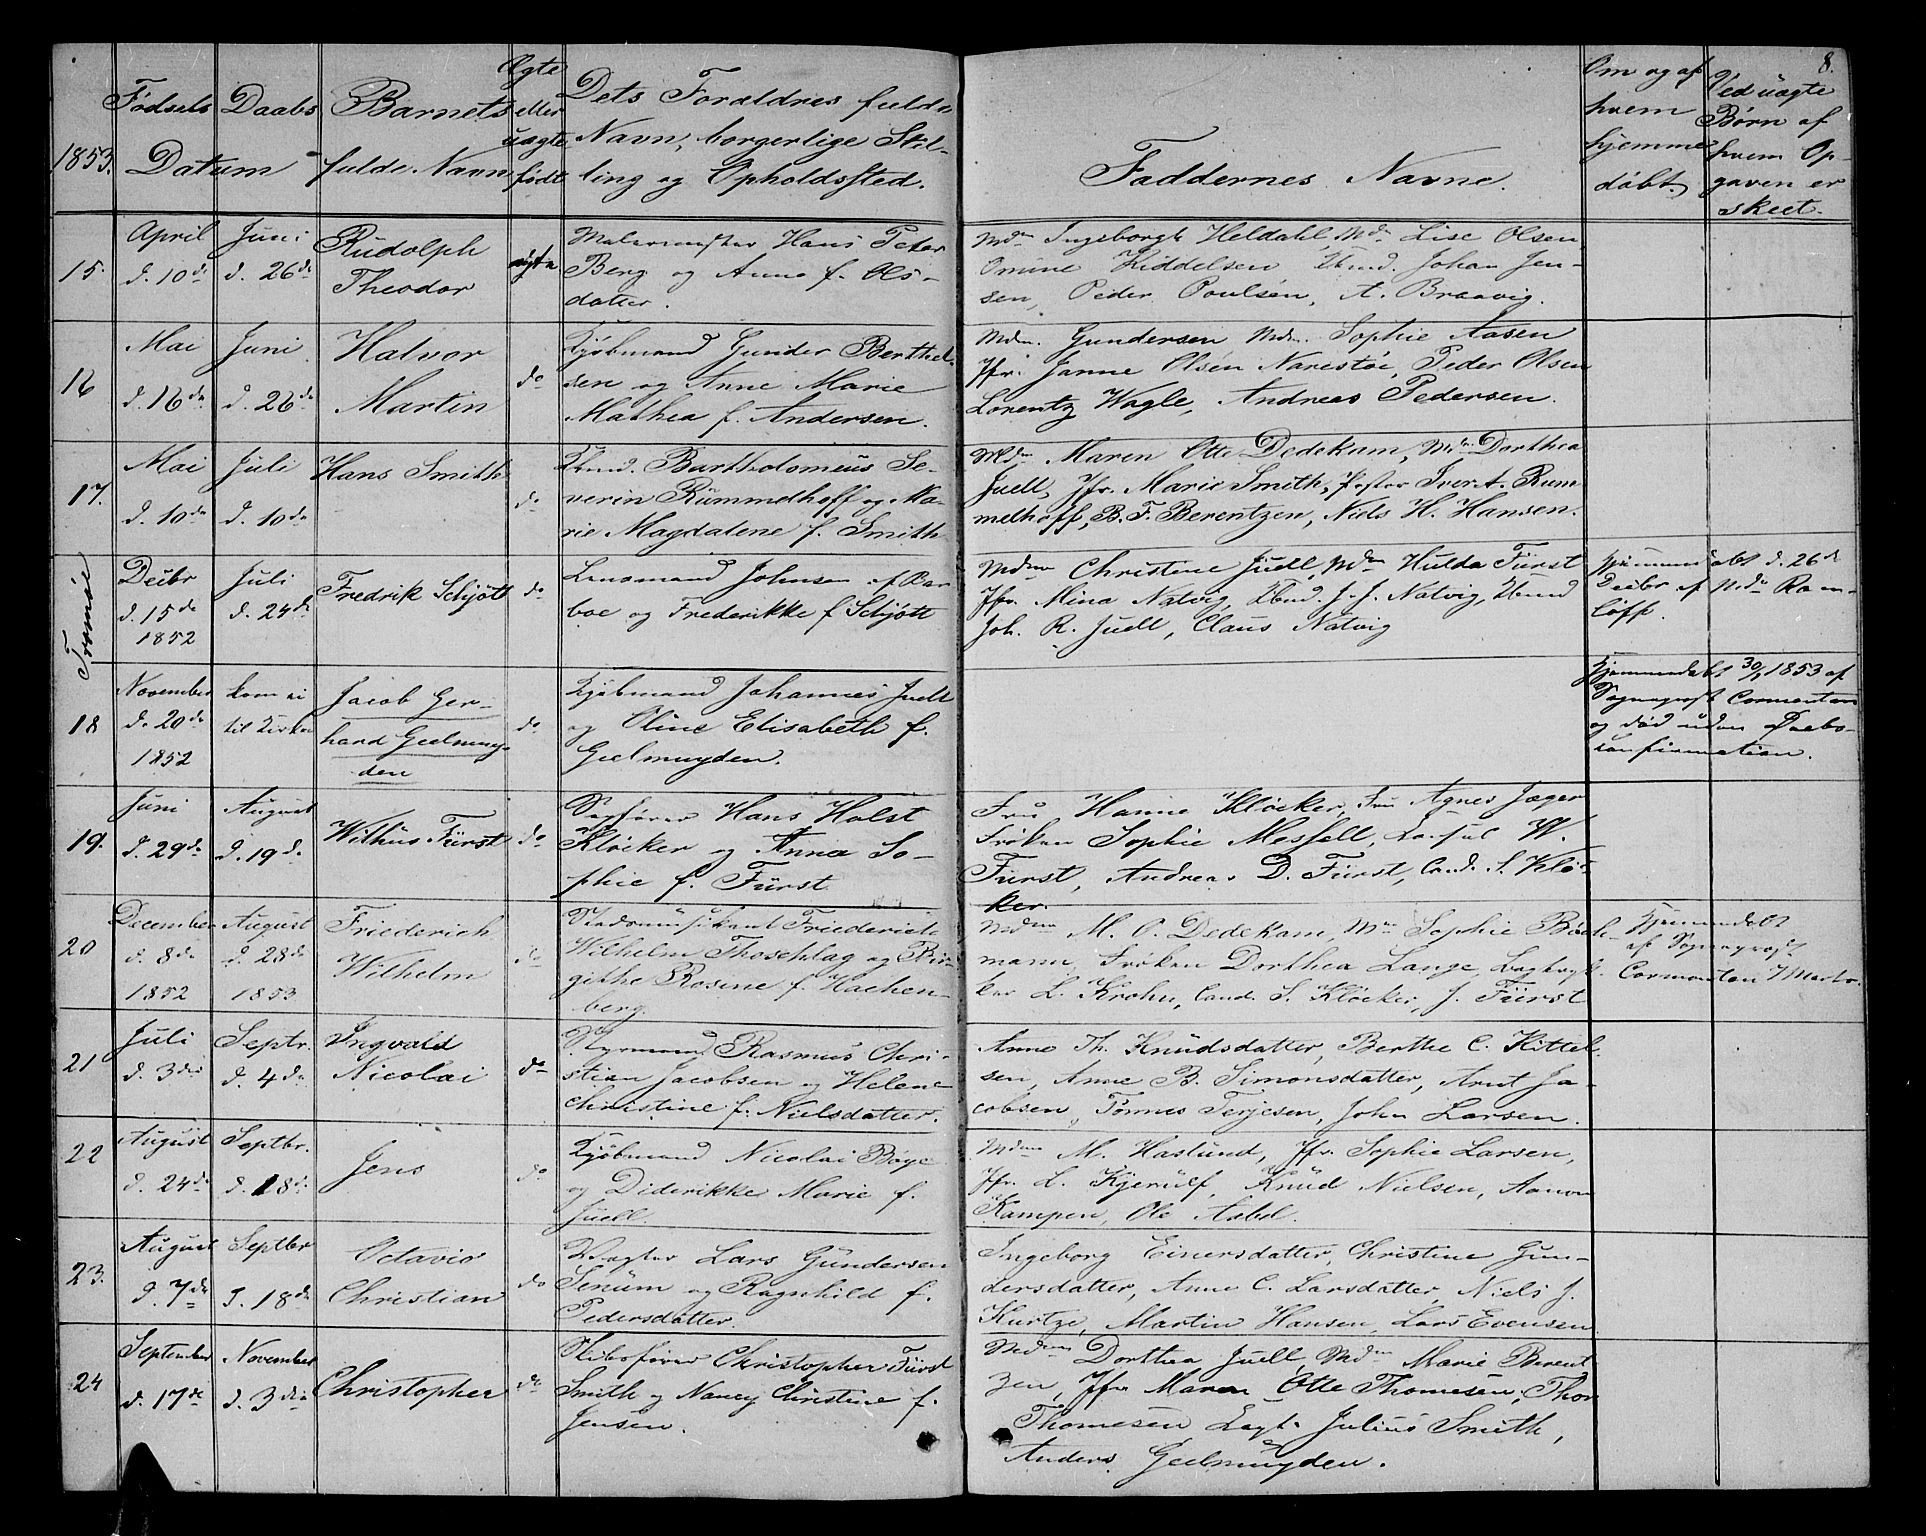 8.
1853.
Fødsels Daabs
Datum
Barnets
fulde Navn
Ægte
eller
uægte
født
Dets Forældres fulde
Navn, borgerlige Stil-
ling og Opholdssted.
Faddernes Navne.
Om og af
hvem
hjemme
døbt.
Ved uægte
Børn af
hvem Op-
gaven er
skeet.
15.
April
d. 10de
Juni
d. 26de
Rudolph
Theodor
ægte
Malermester Hans Peter
Berg og Anne f. Ols-
datter.
Mdm Ingeborg Heldahl, Mdm Lise Olsen
Omine Kiddelsen Kbmd. Johan Jen-
sen, Peder Poulsen, A. Braavig.
16
Mai
d. 16de
Juni
d. 26de
Halvor
Martin
do
Kjøbmand Gunder Berthel-
sen og Anne Marie
Mathea f. Andersen.
Mdm. Gundersen Mdm. Sophie Aasen
Jfr. Janne Olsen Narestøe, Peder Olsen
Lorentz Wagle, Andreas Pedersen.
17.
Mai
d. 10de
Juli
d. 10de
Hans Smith
do
Kbmd. Bartholomeus Se-
verin Rummelhoff og Ma-
rie Magdalene f. Smith
Mdm Maren Otte Dedekam, Mdm Dorthea
Juell, Jfr. Marie Smith, Iver A. Rum
melhoff, B. F. Berentzen, Niels H. Hansen.
Tromøe
Decbr
d. 15de
1852
Juli
d. 24de
Fredrik Schjøtt
do
Lensmand Johnsen af Bar
boe og Frederikke f. Schjøtt
Mdm Christine Juell, Mdm Hulda Fürst
Jfr. Mina Natvig, Kbmd. J. J. Natvig, Kbmd
Joh. R. Juell, Claus Natvig
Hjemmedøbt d. 26de
Decbr af Ram-
løff.
18
November
d. 20de
1852
kom ei
til Kirken
Jacob Ger-
hard Geelmuy-
den
do.
Kjøbmand Johannes Juell
og Oline Elisabeth f.
Geelmuyden.
Hjemmedøbt 30/1 1853 af
Sognepræst Cormontan
og død uden Daabs-
confirmation.
19.
Juni
d. 29de
August
d. 19de
Wilhus Fürst
do
Sagfører Hans Holst
Kløcker og Anna So-
phie f. Fürst
Fru Hanne Kløcker, Fru Agnes Jæger
Frøken Sophie Messell, Consul W.
Fürst, Andreas D. Fürst, Cand. S. Kløc-
ker.
20
December
d. 8de
1852
August
d. 28de
1853
Friederich
Wilhelm
do
Stadsmusikant Friederich
Wilhelm Thoschlag og Bir-
githe Rosine f. Hachen-
berg.
Mdm M. O. Dedekam, Mdm Sophie Bach-
mann, Frøken Dorthea Lange, Bogtryk-
ker L. Krohn, Cand. S. Kløcker, J. Fürst
Hjemmedøbt
af Sognepræst
Cormontan 7 Marts.
21
Juli
d. 3die
Septr.
d. 4de
Ingvald
Nicolai
do
Styrmand Rasmus Chri-
stian Jacobsen og Helene
Christine f. Nielsdatter.
Anne Th. Knudsdatter, Berthe C. Kittel-
sen, Anne B. Simonsdatter, Arnt Ja-
cobsen, Tønnes Terjesen, John Larsen.
22
August
d. 24de
Septbr.
d. 18de
Jens
do
Kjøbmand Nicolai Bøye
og Diderikke Marie f.
Juell.
Mdm M. Haslund, Jfr. Sophie Larsen,
Jfr. L. Kjerulf, Knud Nielsen, Aanon
Kampen, Ole Aabel.
23.
August
d. 7de
Septbr
d. 18de
Octavio
Christian
do
Vægter Lars Gundersen
Senum og Ragnhild f.
Pedersdatter.
Ingeborg Einersdatter, Christine Gun-
dersdatter, Anne C. Larsdatter, Niels J.
Kurtze, Martin Hansen, Lars Evensen
24
September
d. 17de
November
d. 3die
Christopher
do
Skibsfører Christopher Fürst
Smith og Nancy Christine f.
Jensen.
Mdm Dorthea Juell, Mdm Marie Berent
zen, Jfr. Maren Otte Thomesen, Thor
Thomesen, Julius Smith,
Anders Geelmuyden.